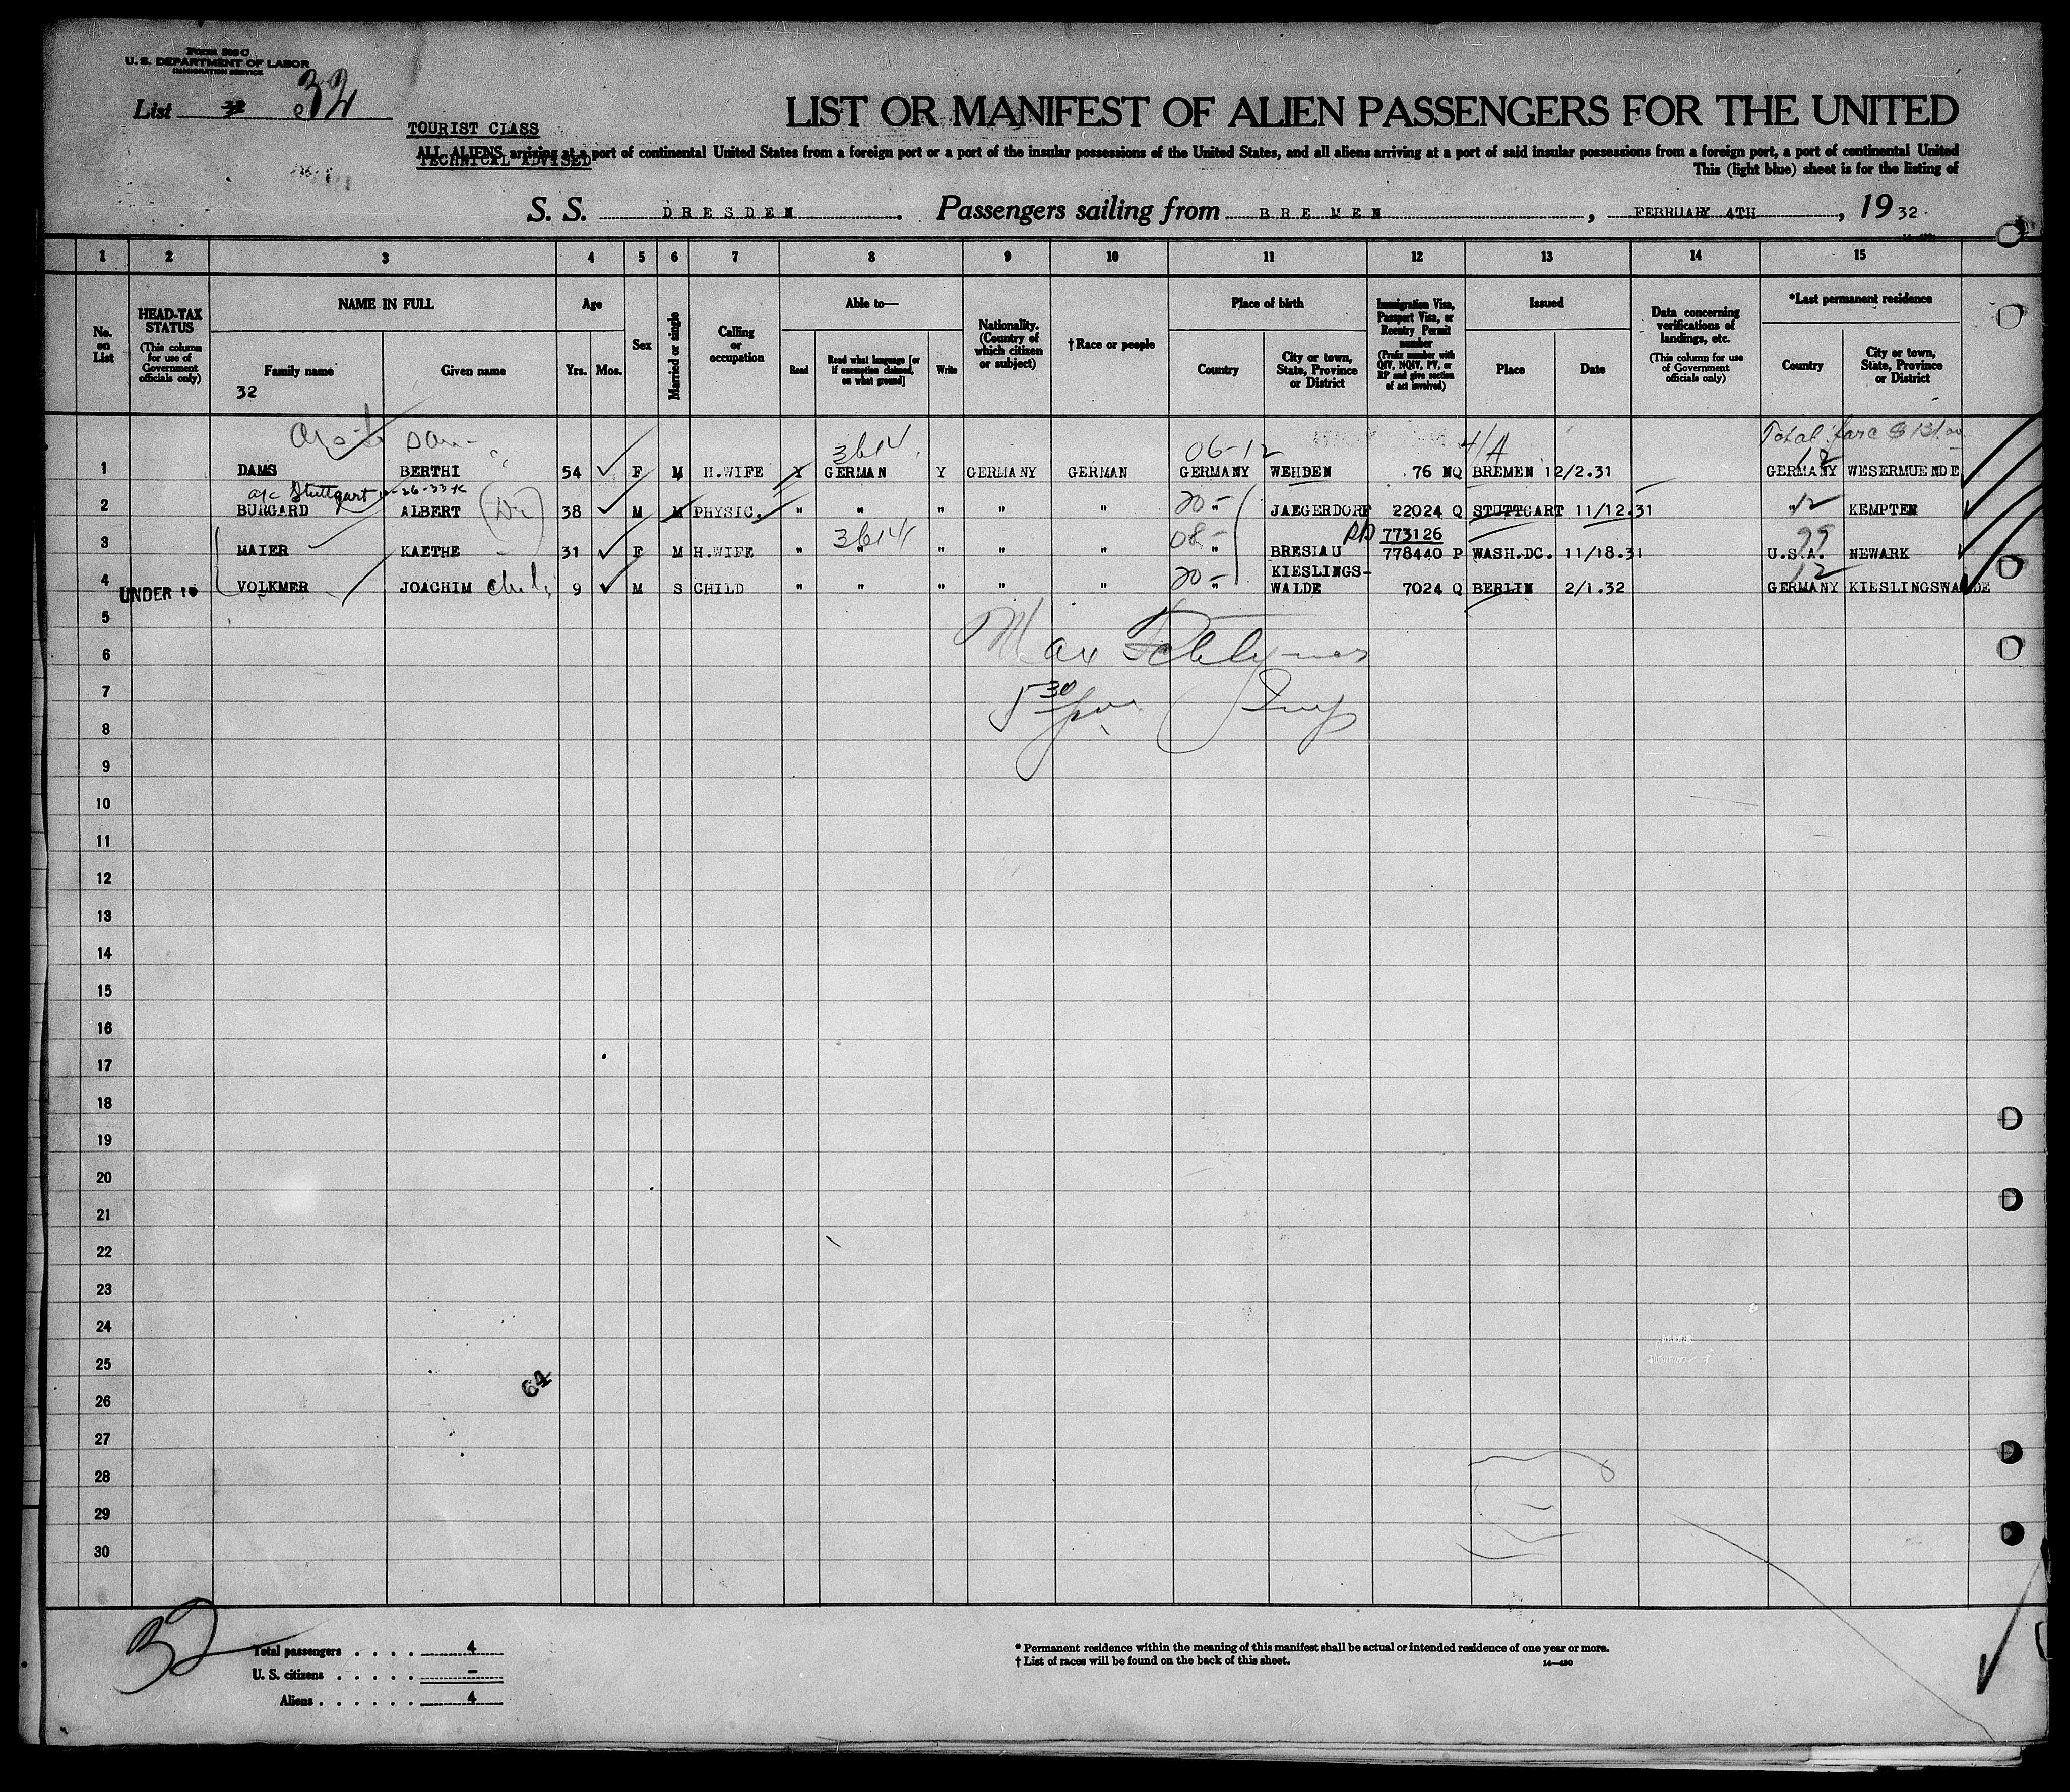 Form 500 C
U. S. DEPARTMENT OF LABOR
IMMIGRATION SERVICE
List 32 32
LIST OR MANIFEST OF ALIEN PASSENGERS FOR THE UNITED
TOURIST CLASS
ALL ALIENS arriving at a port of continental United States from a foreign port or a port of the insular possessions of the United States, and all aliens arriving at a port of said insular possessions from a foreign port, a port of continental United
TECHNICAL ADVISED
This (light blue) sheet is for the listing of
S. S. DRESDEN. Passengers sailing from BREMEN, FEBRUARY 4TH, 1932
1 2 3 4 5 6 7 8 9 10 11 12 13 14 15
No. on List
HEAD-TAX STATUS (This column for use of Government officials only)
NAME IN FULL Family name Given name
32
Age Yrs. Mos.
Sex
Married or single
Calling or occupation
Able to— Read Read what language [or if exemption claimed, on what ground] Write
Nationality. (Country of which citizen or subject)
†Race or people
Place of birth Country City or town, State, Province or District
Immigration Visa, Passport Visa, or Reentry Permit number (Prefix number with QIV, NQIV, PV, or RP and give section of act involved)
Issued Place Date
Data concerning verifications of landings, etc. (This column for use of Government officials only)
*Last permanent residence Country City or town, State, Province or District
3614 06-12 4/A Total fare $ 131.00
12
1 DAMS BERTHI 54 F M H.WIFE Y GERMAN Y GERMANY GERMAN GERMANY WEHDEN 76 NQ BREMEN 12/2.31 GERMANY WESERMUENDE
a/c Stuttgart
2 BURGARD ALBERT (Dr) 38 M M PHYSIC. " " " " " 20- " JAEGERDORF 22024 Q STUTTGART 11/12.31 " 12 KEMPTEN
3614 08- 773126 99
3 MAIER KAETHE 31 F M H.WIFE " " " " " " BRESLAU 778440 P WASH.DC. 11/18.31 U.S.A. NEWARK
20- KIESLINGS- 12
4 UNDER 10 VOLKMER JOACHIM child 9 M S CHILD " " " " " " WALDE 7024 Q BERLIN 2/1.32 GERMANY KIESLINGSWALDE
5
6 Max
7 5 30
8
9
10
11
12
13
14
15
16
17
18
19
20
21
22
23
24
25
64
26
27
28
29
30
32
Total passengers . . . . 4
U. S. citizens . . . . . -
Aliens . . . . . . 4
* Permanent residence within the meaning of this manifest shall be actual or intended residence of one year or more.
† List of races will be found on the back of this sheet.
14—430